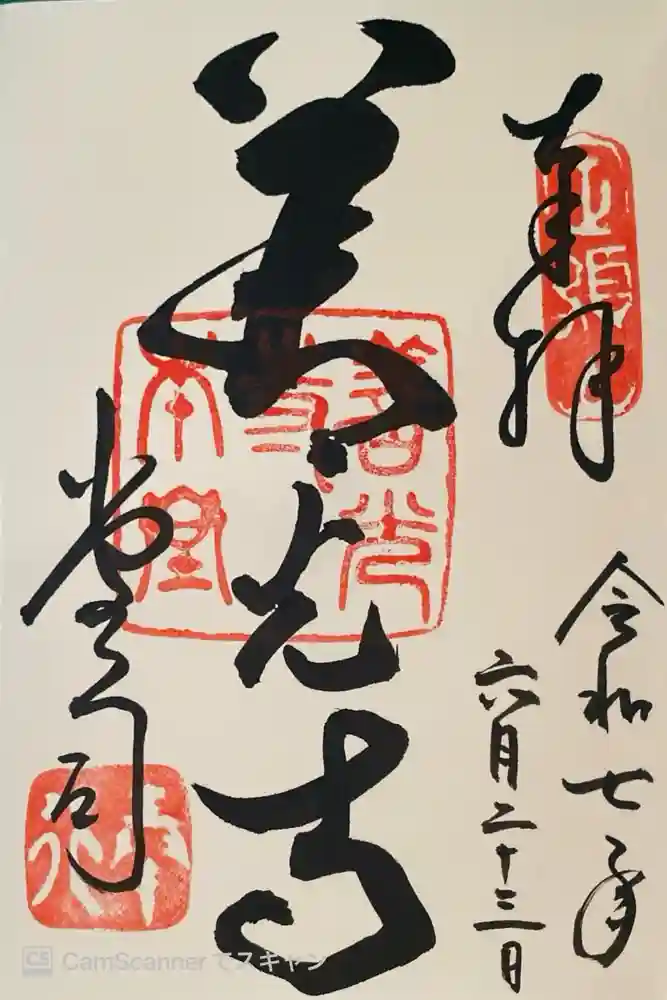 奉拝
令和七年
六月二十三日
善光寺
善光
寺
本堂
堂司
CS CamScanner でスキャン